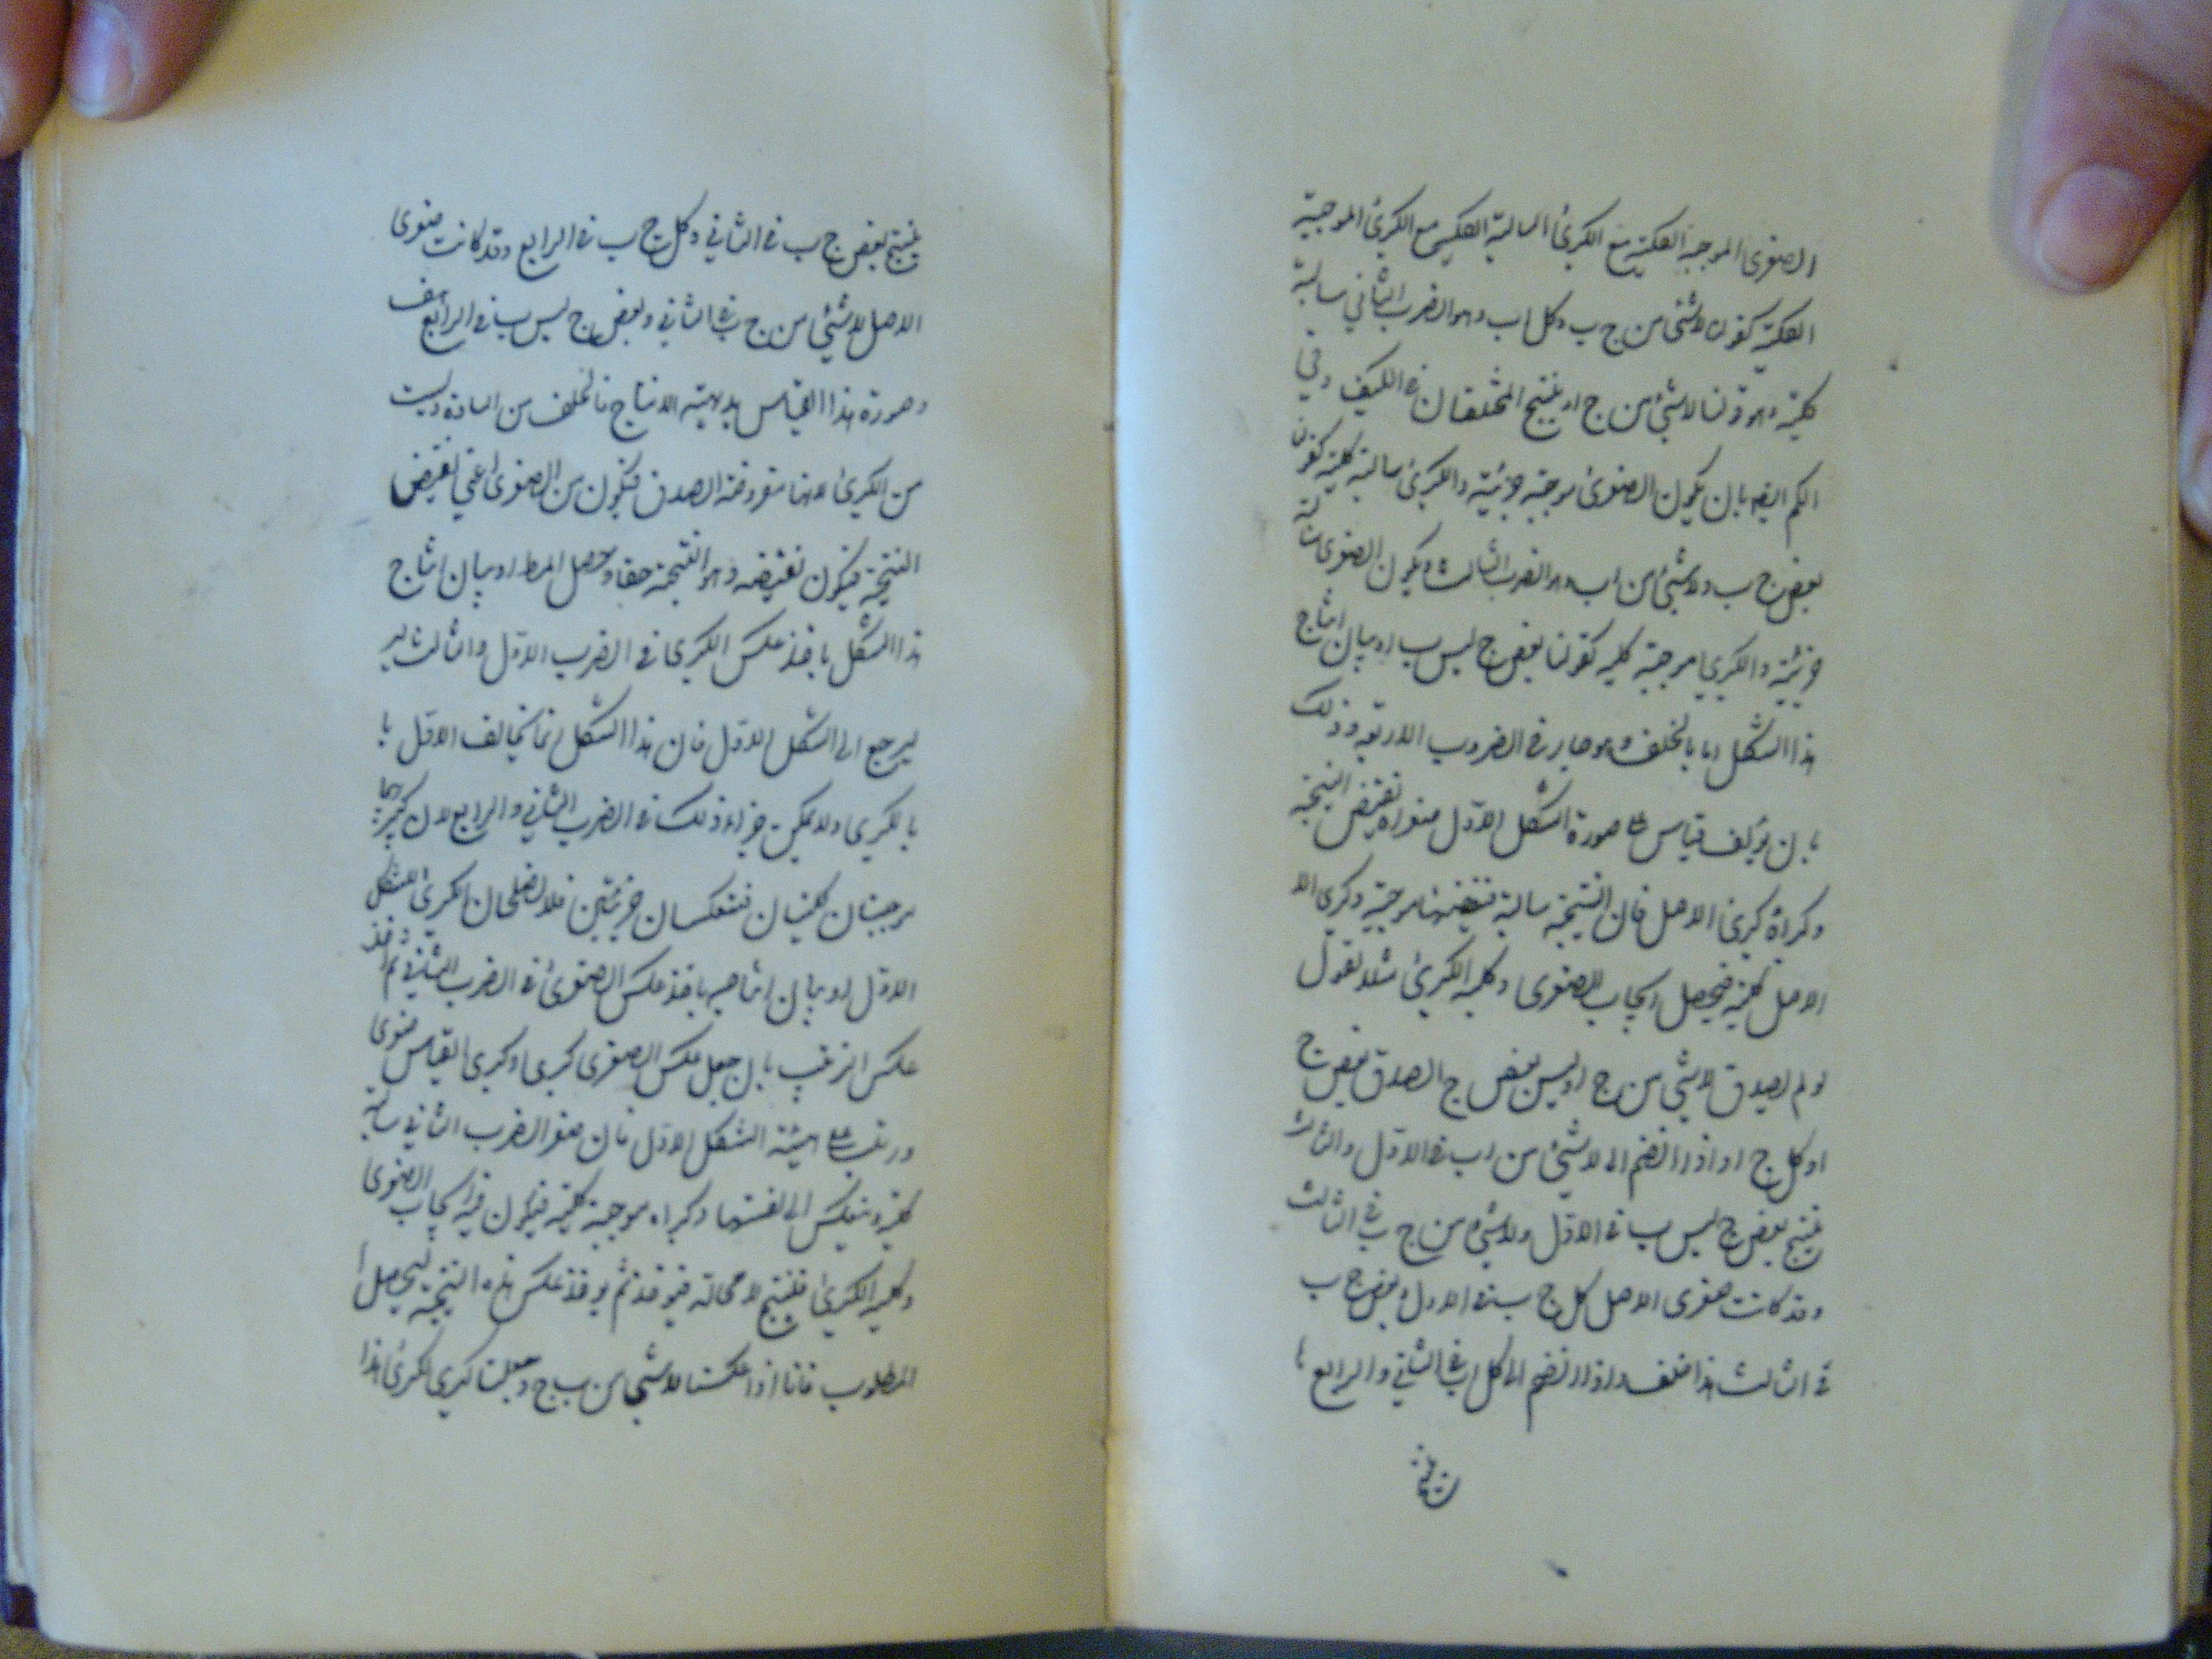 الصغرى الموجبة الكلية مع الكبرى السالبة الكلية مع الكبرى الموجبة
الكلية كقولنا لا شئ من ج ب وكل ا ب وهو الضرب الثاني سالبة
كلية وهو قولنا لا شئ من ج ا و ينتج المختلفتان في الكيف وفي
الكم ايضا بان يكون الصغرى موجبة جزئية والكبرى سالبة كلية كقولنا
بعض ج ب ولا شئ من ا ب وهو الضرب الثالث ويكون الصغرى سالبة
جزئية والكبرى موجبة كلية كقولنا بعض ج ليس ب او بيان انتاج
هذا الشكل اما بالخلف وهو جار في الضروب الاربعة وذلك
بان يؤلف قياس على صورة الشكل الاول صغراه نقيض النتيجة
وكبراه كبرى الاصل فان النتيجة سالبة فنقيضها موجبة وكبرى الا
الاصل كلية فيحصل ايجاب الصغرى وكلية الكبرى مثلا نقول
لو لم يصدق لا شئ من ج ا وليس بعض ج ا لصدق بعض ج
او كل ج ا و اذا انضم الى لا شئ من ا ب في الاول والثالث
ينتج بعض ج ليس ب في الاول ولا شئ من ج ب في الثالث
وقد كانت صغرى الاصل كل ج ب في الاول وبعض ج ب
في الثالث هذا خلف واذا انضم الى كل ا ب في الثاني والرابع
ينتج بعض ج ب في الثاني وكل ج ب في الرابع وقد كانت صغرى
الاصل لا شئ من ج ب في الثاني وبعض ج ليس ب في الرابع هف
وصورة هذا القياس بديهية الانتاج فالخلف من المادة وليست
من الكبرى لانها مفروضة الصدق فيكون من الصغرى اعني نقيض
النتيجة فيكون نقيضه وهو النتيجة حقا وحصل المط او بيان انتاج
هذا الشكل باخذ عكس الكبرى في الضرب الاول والثالث لير
ليرجع الى الشكل الاول فان هذا الشكل انما يخالف الاول با
بالكبرى ولا يمكن اجراء ذلك في الضرب الثاني والرابع لان كبريهما
موجبتان كليتان فتنعكسان جزئيتين فلا تصلحان الكبرى الشكل
الاول او بيان انتاجه باخذ عكس الصغرى في الضرب الثاني ثم اخذ
عكس الترتيب بان جعل عكس الصغرى كبرى وكبرى القياس صغرى
ورتب على هيئة الشكل الاول فان صغر الضرب الثاني سالبة
كلية وينعكس الى نفسها وكبراه موجبة كلية فيكون فيه ايجاب الصغرى
وكلية الكبرى فينتج لا محالة ثم يوخذ عكس هذه النتيجة ليحصل ا
المطلوب فانا اذا عكسنا لا شئ من ب ج وجعلنا كبرى لكبرى هذا